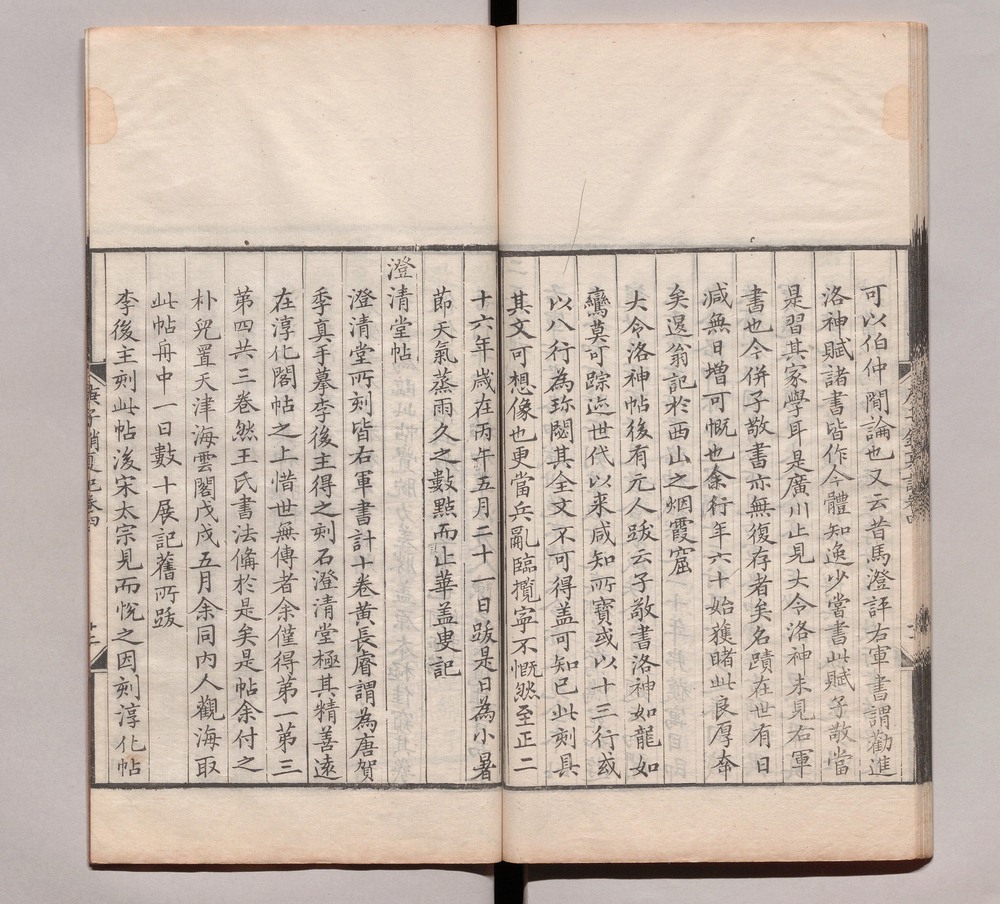 可以伯仲間論也又云昔馬澄評右軍書謂勸進
洛神賦諸書皆作今體知逸少嘗書此賦子敬當
是習其家學耳是廣川止見大令洛神未見右軍
書也今併子敬書亦無復存者矣名蹟在世有日
減無日增可慨也余行年六十始獲睹此良厚幸
矣退翁記於西山之烟霞窟
大令洛神帖後有元人跋云子敬書洛神如龍如
鸞莫可踪迹世代以來咸知所寶或以十三行或
以八行為珎閟其全文不可得盖可知已此刻具
其文可想像也更當兵亂臨攬寧不慨然至正二
十六年歲在丙午五月二十一日跋是日為小暑
節天氣蒸雨久之數點而止華盖叟記
澄清堂帖
澄清堂所刻皆右軍書計十卷黃長睿謂為唐賀
季真手摹李後主得之刻石澄清堂極其精善遠
在淳化閣帖之上惜世無傳者余僅得第一第三
第四共三卷然王氏書法俻於是矣是帖余付之
朴兒置天津海雲閣戊戌五月余同内人觀海取
此帖舟中一日數十展記舊所跋
李後主刻此帖後宋太宗見而悅之因刻淳化帖
庚子銷夏記卷四